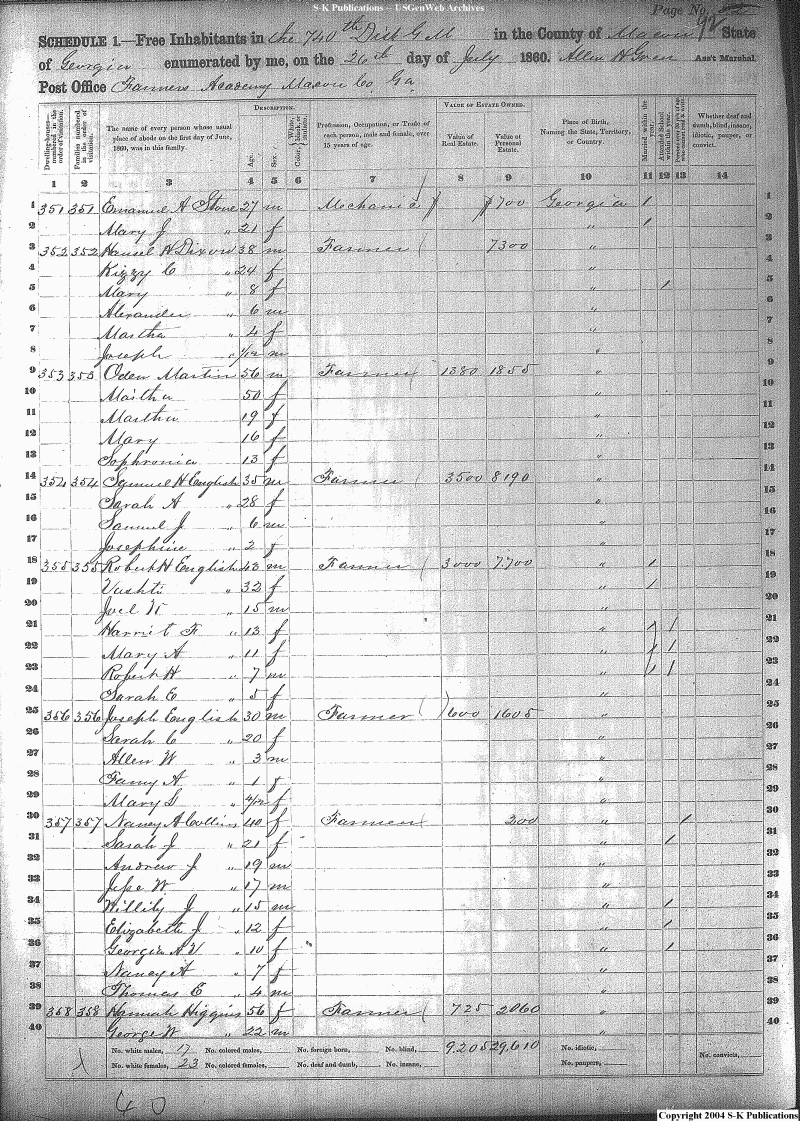 S-K Publications – USGenWeb Archives
Page No. 92
SCHEDULE 1.—Free Inhabitants in the 740th Dist G M in the County of Macon State
of Georgia enumerated by me, on the 26th day of July 1860. Allen H Green Ass't Marshal.
Post Office Farmers Academy Macon Co. Ga.
Dwelling-houses—numbered in the order of visitation.
Families numbered in the order of visitation.
The name of every person whose usual place of abode on the first day of June, 1860, was in this family.
DESCRIPTION.
Age.
Sex.
Color, White, black, or mulatto.
Profession, Occupation, or Trade of each person, male and female, over 15 years of age.
VALUE OF ESTATE OWNED.
Value of Real Estate.
Value of Personal Estate.
Place of Birth, Naming the State, Territory, or Country.
Married within the year.
Attended School within the year.
Whether deaf and dumb, blind, insane, idiotic, pauper, or convict.
1 2 3 4 5 6 7 8 9 10 11 12 13 14
1 351 351 Emanuel A Stone 27 m Mechanic $ $700 Georgia / 1
2 Mary J " 21 f " / 2
3 352 352 Hansel H Dixon 38 m Farmer 7300 " 3
4 Kizzy C " 24 f " 4
5 Mary " 8 f " / 5
6 Alexander " 6 m " 6
7 Martha " 4 f " 7
8 Joseph " /12 m " 8
9 353 353 Oden Martin 56 m Farmer 1380 1855 " 9
10 Martha 50 f " 10
11 Martha 19 f " 11
12 Mary 16 f " 12
13 Sophronia 13 f " 13
14 354 354 Samuel H English 35 m Farmer 3500 8190 " 14
15 Sarah A " 28 f " 15
16 Samuel J " 6 m " 16
17 Josephine " 2 f " 17
18 355 355 Robert H English 43 m Farmer 3000 7700 " / 18
19 Vashti " 32 f " / 19
20 Joel W " 15 m " 20
21 Harriet F " 13 f " / / 21
22 Mary A " 11 f " / / 22
23 Robert H " 7 m " / / 23
24 Sarah E " 5 f " 24
25 356 356 Joseph English 30 m Farmer 600 1605 " 25
26 Sarah C " 20 f " 26
27 Allen W " 3 m " 27
28 Fanny A " 1 f " 28
29 Mary S " 4/12 f " 29
30 357 357 Nancy A Collins 40 f Farmer 200 " / 30
31 Sarah J " 21 f " / 31
32 Andrew J " 19 m " 32
33 Jesse W " 17 m " 33
34 J " 15 m " / 34
35 Elizabeth J " 12 f " / 35
36 Georgia A V " 10 f " / 36
37 Nancy A " 7 f " 37
38 Thomas E " 4 m " 38
39 358 358 Hannah Higgins 56 f Farmer 725 2060 " 39
40 George W " 22 m " 40
No. white males, 17 No. colored males, No. foreign born, No. blind, 9.205 29,610 No. idiotic, No. convicts,
No. white females, 23 No. colored females, No. deaf and dumb, No. insane, No. paupers,
40
Copyright 2004 S-K Publications